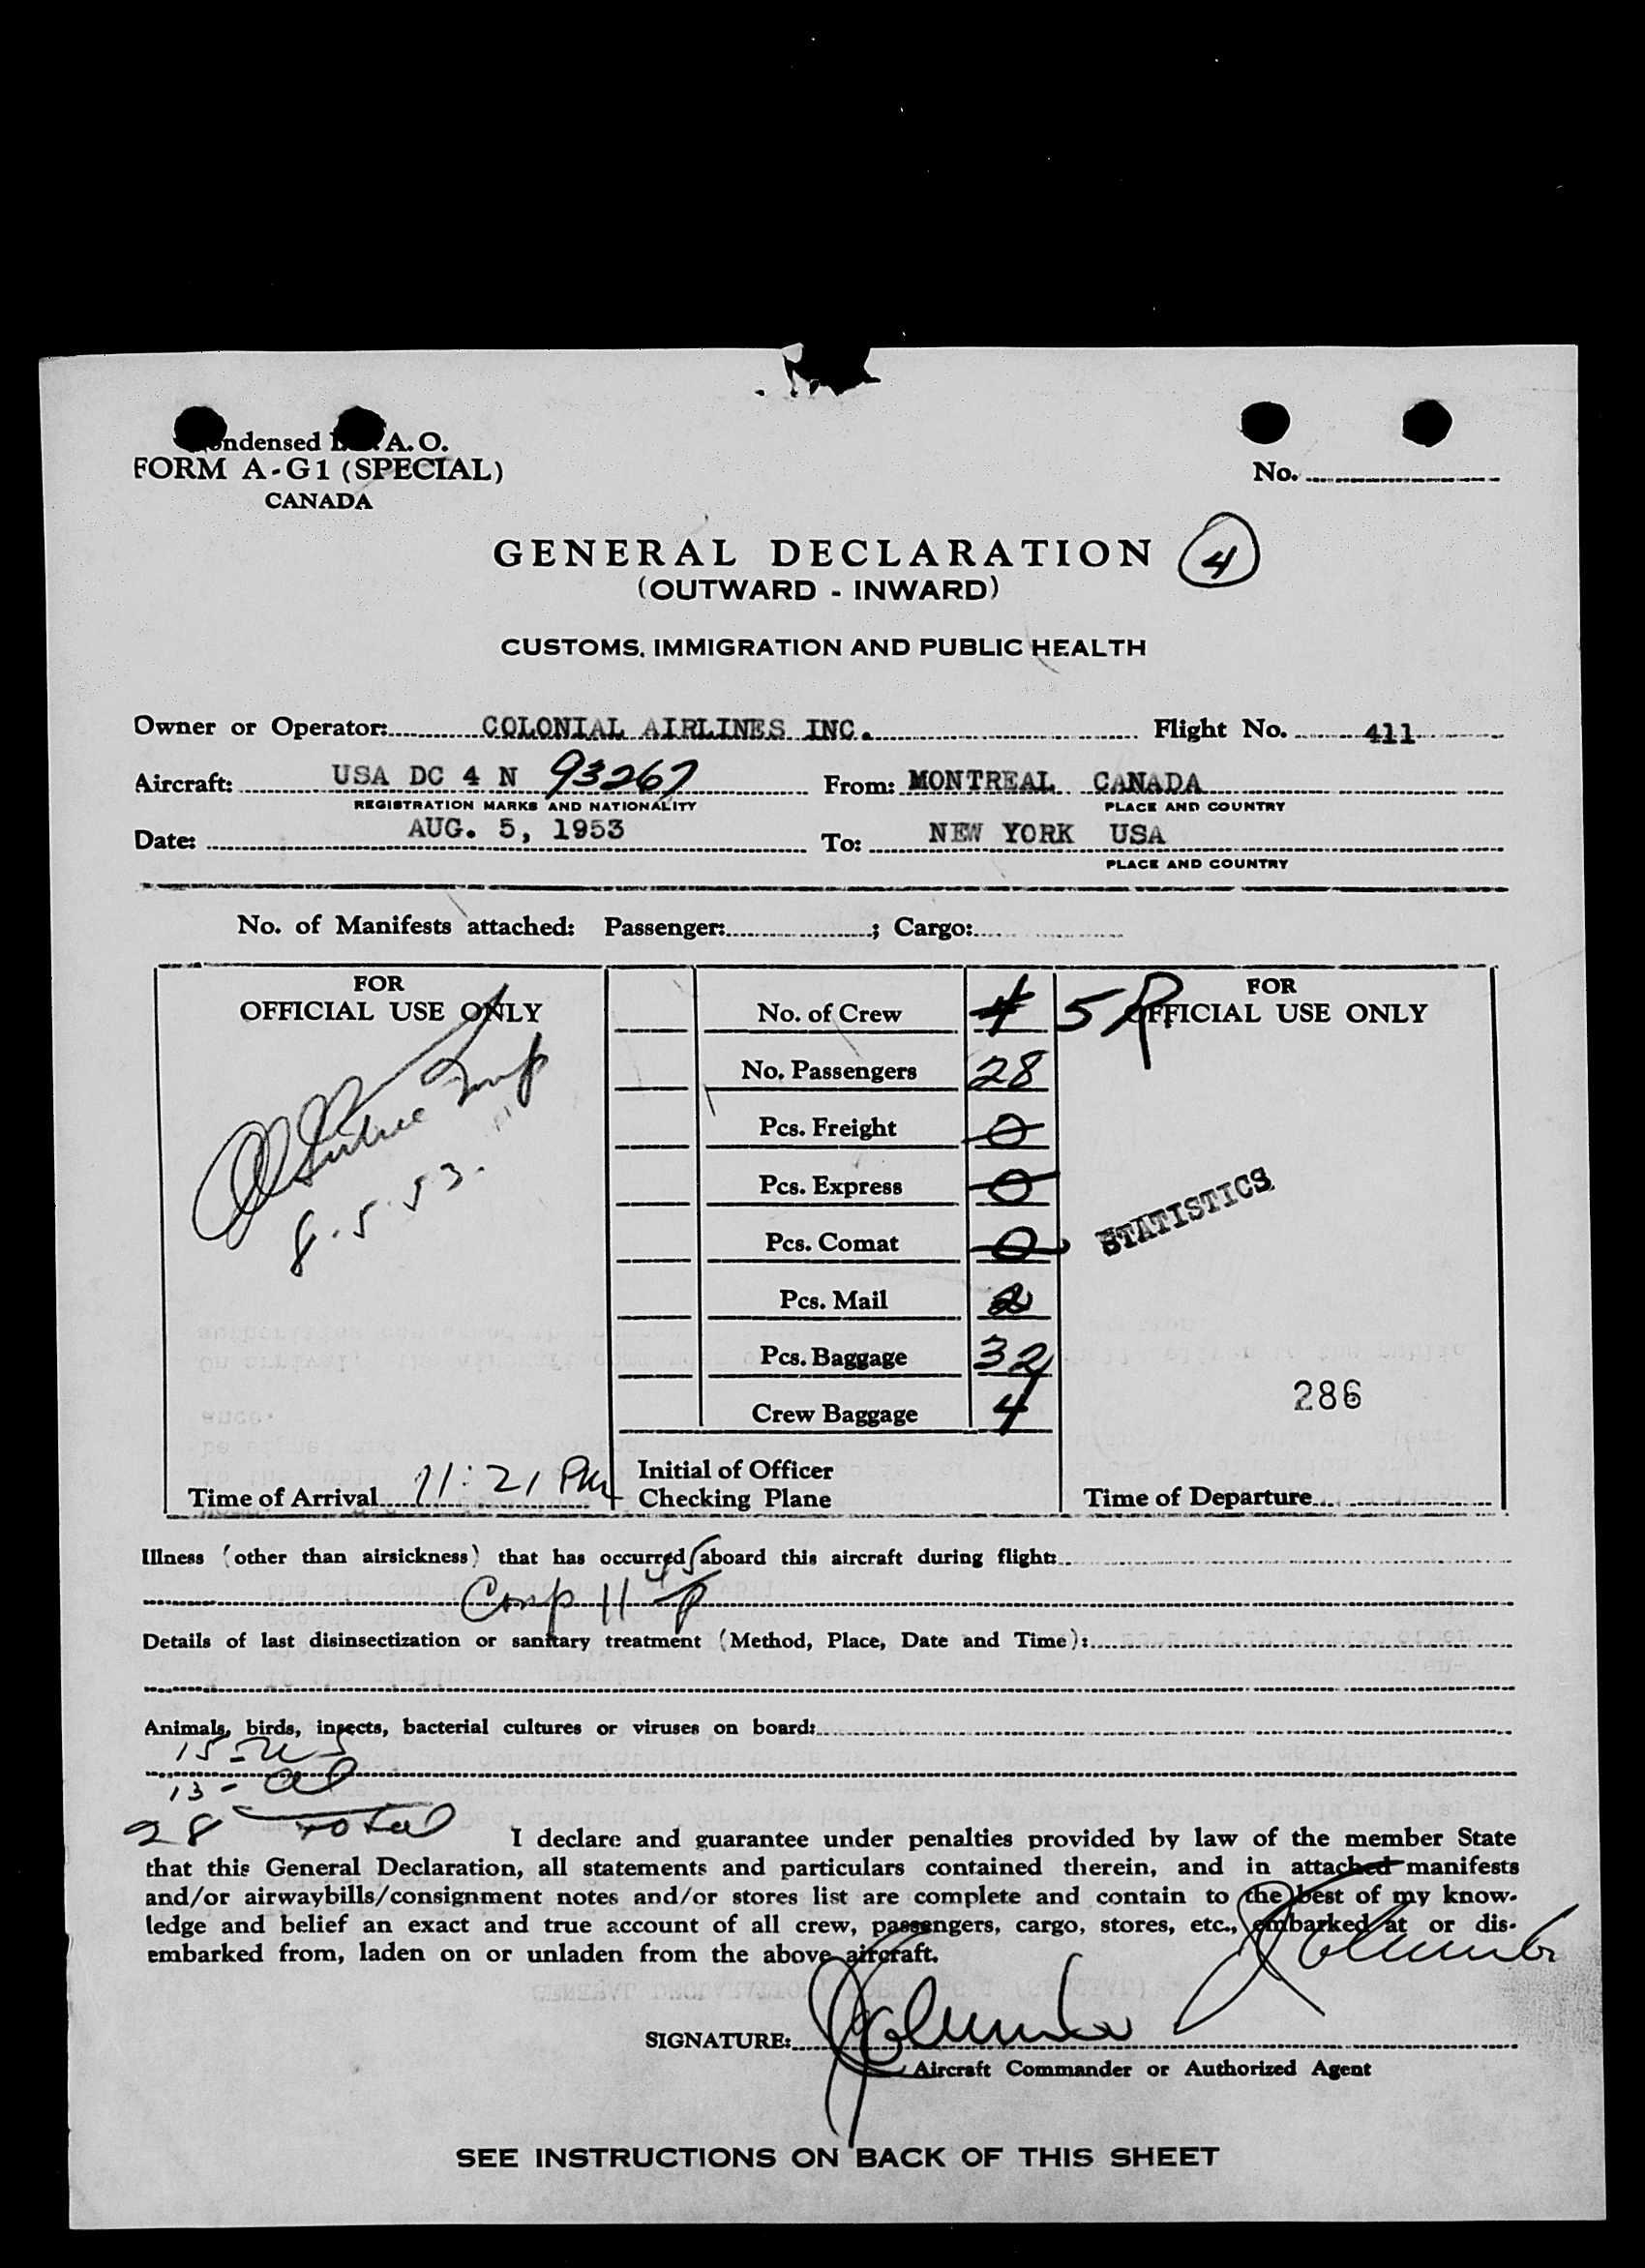 Condensed I. A. O.
FORM A-G1 (SPECIAL)
CANADA
No.
GENERAL DECLARATION 4
(OUTWARD - INWARD)
CUSTOMS, IMMIGRATION AND PUBLIC HEALTH
Owner or Operator: COLONIAL AIRLINES INC. Flight No. 411
Aircraft: USA DC 4 N 93267 From: MONTREAL CANADA
REGISTRATION MARKS AND NATIONALITY PLACE AND COUNTRY
Date: AUG. 5, 1953 To: NEW YORK USA
PLACE AND COUNTRY
No. of Manifests attached: Passenger: ; Cargo:
FOR
OFFICIAL USE ONLY
8.5.53.
Time of Arrival 11:21 PM
No. of Crew 4 5
No. Passengers 28
Pcs. Freight 0
Pcs. Express 0
Pcs. Comat 0
Pcs. Mail 2
Pcs. Baggage 32
Crew Baggage 4
Initial of Officer
Checking Plane
FOR
OFFICIAL USE ONLY
STATISTICS
286
Time of Departure
Illness (other than airsickness) that has occurred aboard this aircraft during flight:
Comp 11 45 P
Details of last disinsectization or sanitary treatment (Method, Place, Date and Time):
Animals, birds, insects, bacterial cultures or viruses on board:
15 - US
13 - al
28 Total
I declare and guarantee under penalties provided by law of the member State
that this General Declaration, all statements and particulars contained therein, and in attached manifests
and/or airwaybills/consignment notes and/or stores list are complete and contain to the best of my know-
ledge and belief an exact and true account of all crew, passengers, cargo, stores, etc., embarked at or dis-
embarked from, laden on or unladen from the above aircraft.
SIGNATURE:
Aircraft Commander or Authorized Agent
SEE INSTRUCTIONS ON BACK OF THIS SHEET